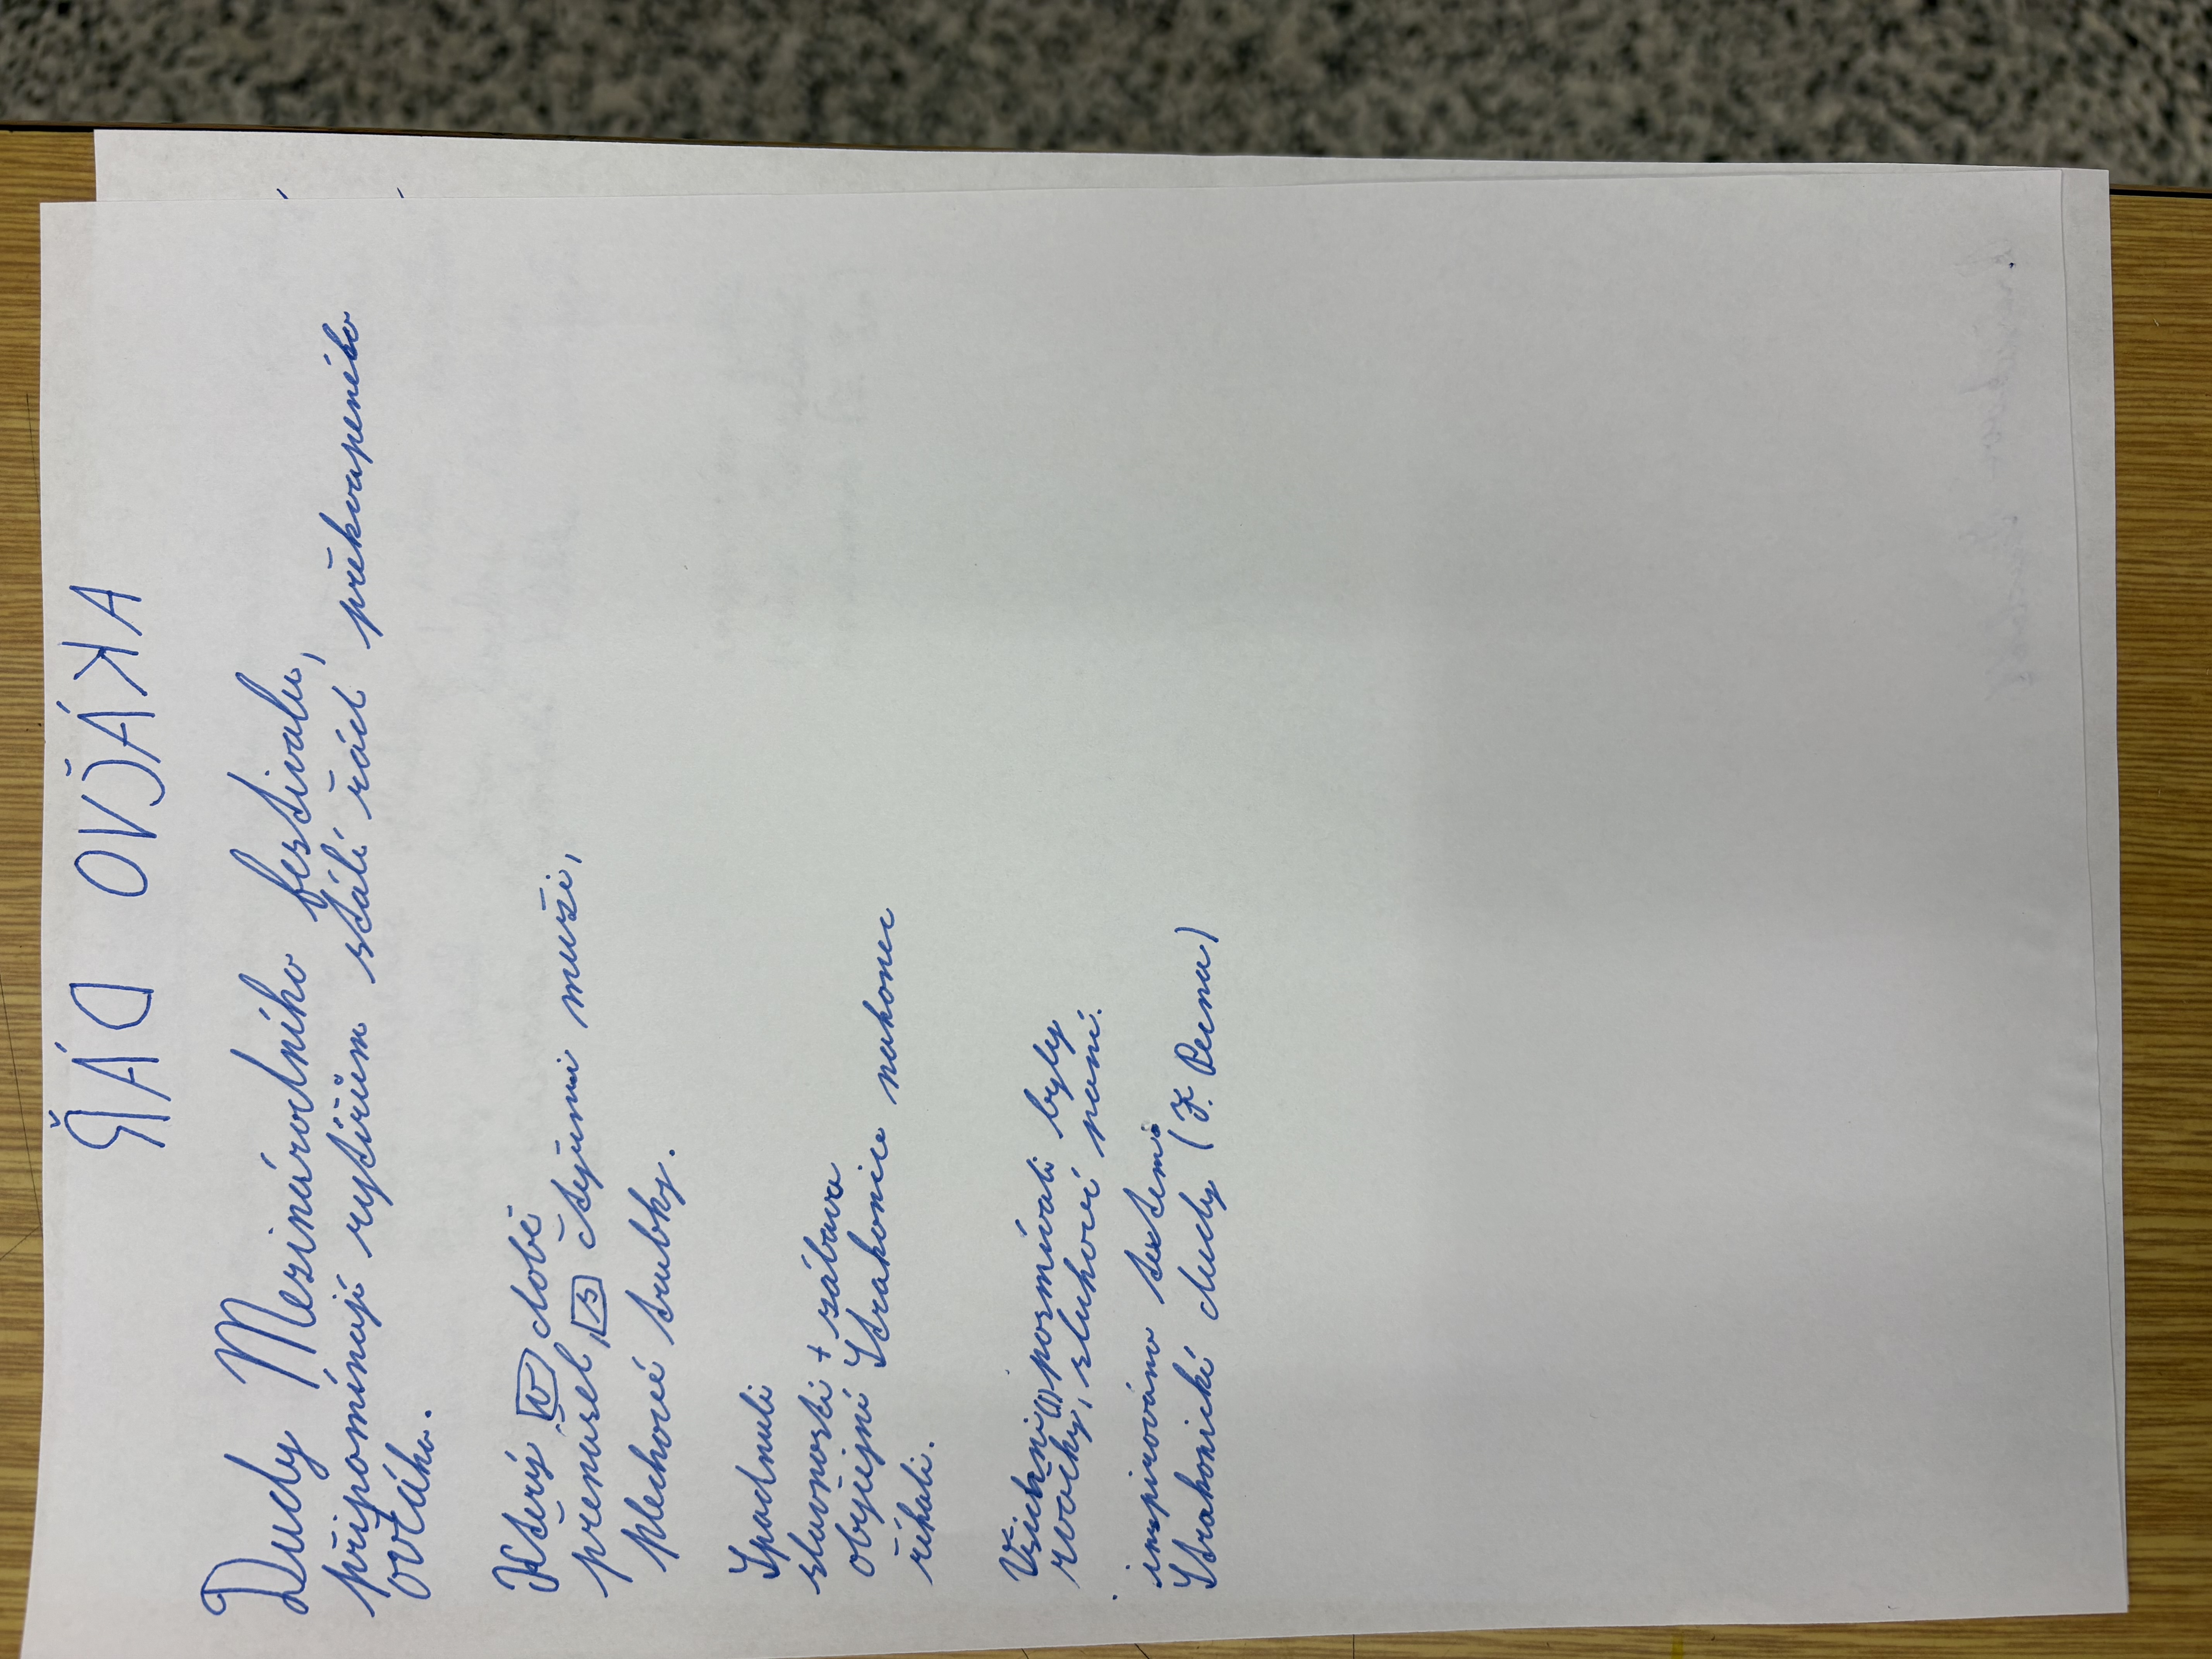 ŘÁD OVČÁKA
Dudy Mezinárodního festivalu,
připomínají rytířům stálí řád překvapeného
ovčáka.
Který v době
přenasel, s čtyřmi muži,
plechové trubky.
Spadnuli
slavnosti + zábava
obyjejní Strakonice nakonec
říkali.
Všichni (I) poznívali byly
rvačky, sluhové není.
inspirováno textem:
Strakonické dudy (J. Pecna)